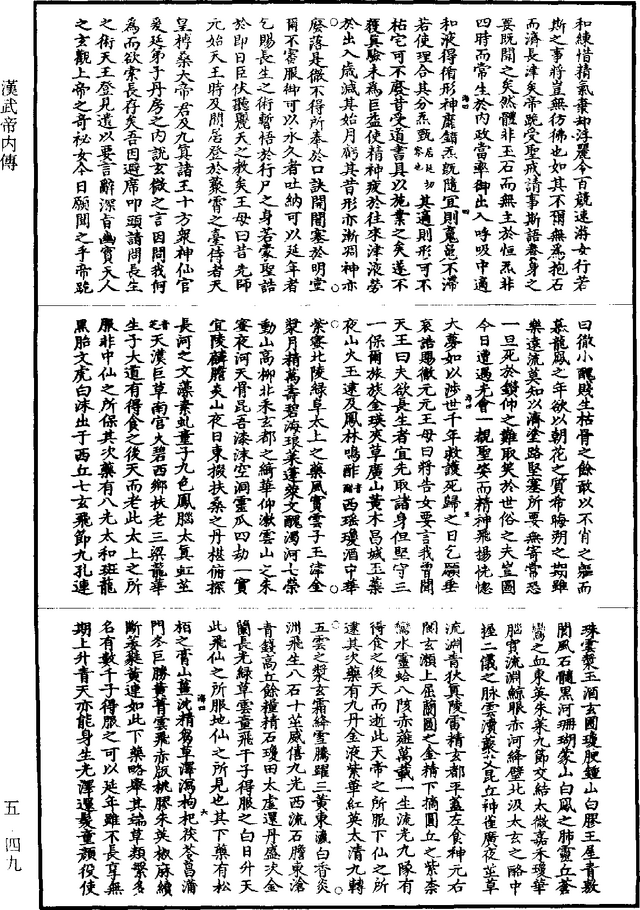 漢武帝内傳
和練惜精氣棄却浮麗令百競速游女行若
斯之事將豈無彷彿也如其不爾無為抱石
而濟長津矣帝跪受聖戒請事斯語養身之
要既聞之矣然體非玉石而無主於恒炁非
四時而常生於内政當率御出入呼吸中適
和液得術形神靡錯炁既隨宜則魔邪不滯
若使理合其分炁甄居延切察也其適則形可不
枯宅可不廢昔受道書具以施業之矣遂不
獲真驗未為巨益使精神疲於往來津液勞
於出入歲減其始月虧其昔形亦漸凋神亦
廢落是微不得所奉於口訣開闇塞於明堂
爾不審服御可以永久者吐納可以延年者
乞賜長生之術暫悟於行尸之身若蒙聖誥
於即日臣伏聽麗天之教矣王母曰昔先師
元始天王時及閑居登於藂霄之臺侍者天
皇搏桑大帝君及九真諸王十方衆神仙官
爰延弟子丹房之内說玄微之言因問我何
為而欲索長存矣吾因避席叩頭請問長生
之術天王登見遺以要言辭深旨幽實天人
之玄觀上帝之奇祕女今日願聞之乎帝跪
曰徹小醜賤生枯骨之餘敢以不肖之軀而
慕龍鳳之年欲以朝花之質希晦朔之期雖
樂遠流莫知以濟塗路堅塞所要無寄常恐
一旦死於鑽仰之難取笑於世俗之夫豈圖
今日遭遇光會一覩聖姿而精神飛揚恍惚
大夢如以涉世千年救護死歸之日乞願垂
哀誥賜徹元元王母曰將告女要言我曾聞
天王曰夫欲長生者宜先取諸身但堅守三
一保爾旅族金瑛夾草廣山黃木昌城玉蘂
夜山火玉逮及鳳林鳴酢西瑶瓊酒中華
紫蜜北陵綠阜太上之藥風實雲子玉津金
漿月精萬壽碧海琅菜蓬萊文醜濁河七榮
動山高柳北采玄都之綺華仰漱雲山之朱
蜜夜河天骨昆吾漆沫空洞靈瓜四劫一實
宜陵麟膽炎山夜日東掇扶桑之丹椹俯採
長河之文藻素虬童子九色鳳腦太真虹芝
天漢巨草南宮火碧西鄉扶老三梁龍華
生子大道有得食之後天而老此太上之所
服非中仙之所保其次藥有八光太和斑龍
黑胎文虎白沫出于西丘七玄飛節九孔連
珠雲漿玉酒玄圃瓊腴鍾山白膠王屋青敷
閬風石髓黑河珊瑚蒙山白鳳之肺靈丘蒼
鸞之血東英朱菜九節交結太微嘉禾瓊華
腦實流淵鯨眼赤河絳壁北汲太玄之酪中
握二儀之脉雲瀆藂艾昆丘神雀廣夜芝草
流淵青狄真陵雷精玄都平蓋左食神元右
闕玄瀨上屈蘭園之金精下摘圓丘之紫柰
鸞水靈蛤八陔赤薤萬載一生流光九隊有
得食之後天而逝此天帝之所服下仙之所
逮其次藥有九丹金液紫華紅英太清九轉
五雲之漿玄霜絳雪騰躍三黃東瀛白香炎
洲飛生八石十芝威僖九光西流石膽東滄
青錢高丘餘糧精石瓊田太虛還丹盛次金
蘭長光綠草雲童飛千子得服之白日升天
此飛仙之所服地仙之所見也其下藥有松
柏之膏山薑沈精蒭草澤瀉枸杞茯苓菖蒲
門冬巨勝黃菁雲飛赤版桃膠朱英椒麻續
斷萎蕤黃連如此下藥略舉其端草類繁多
名有數千子得服之可以延年雖不長享無
期上升青天亦能身生光澤還髮童顏役使
五·四九